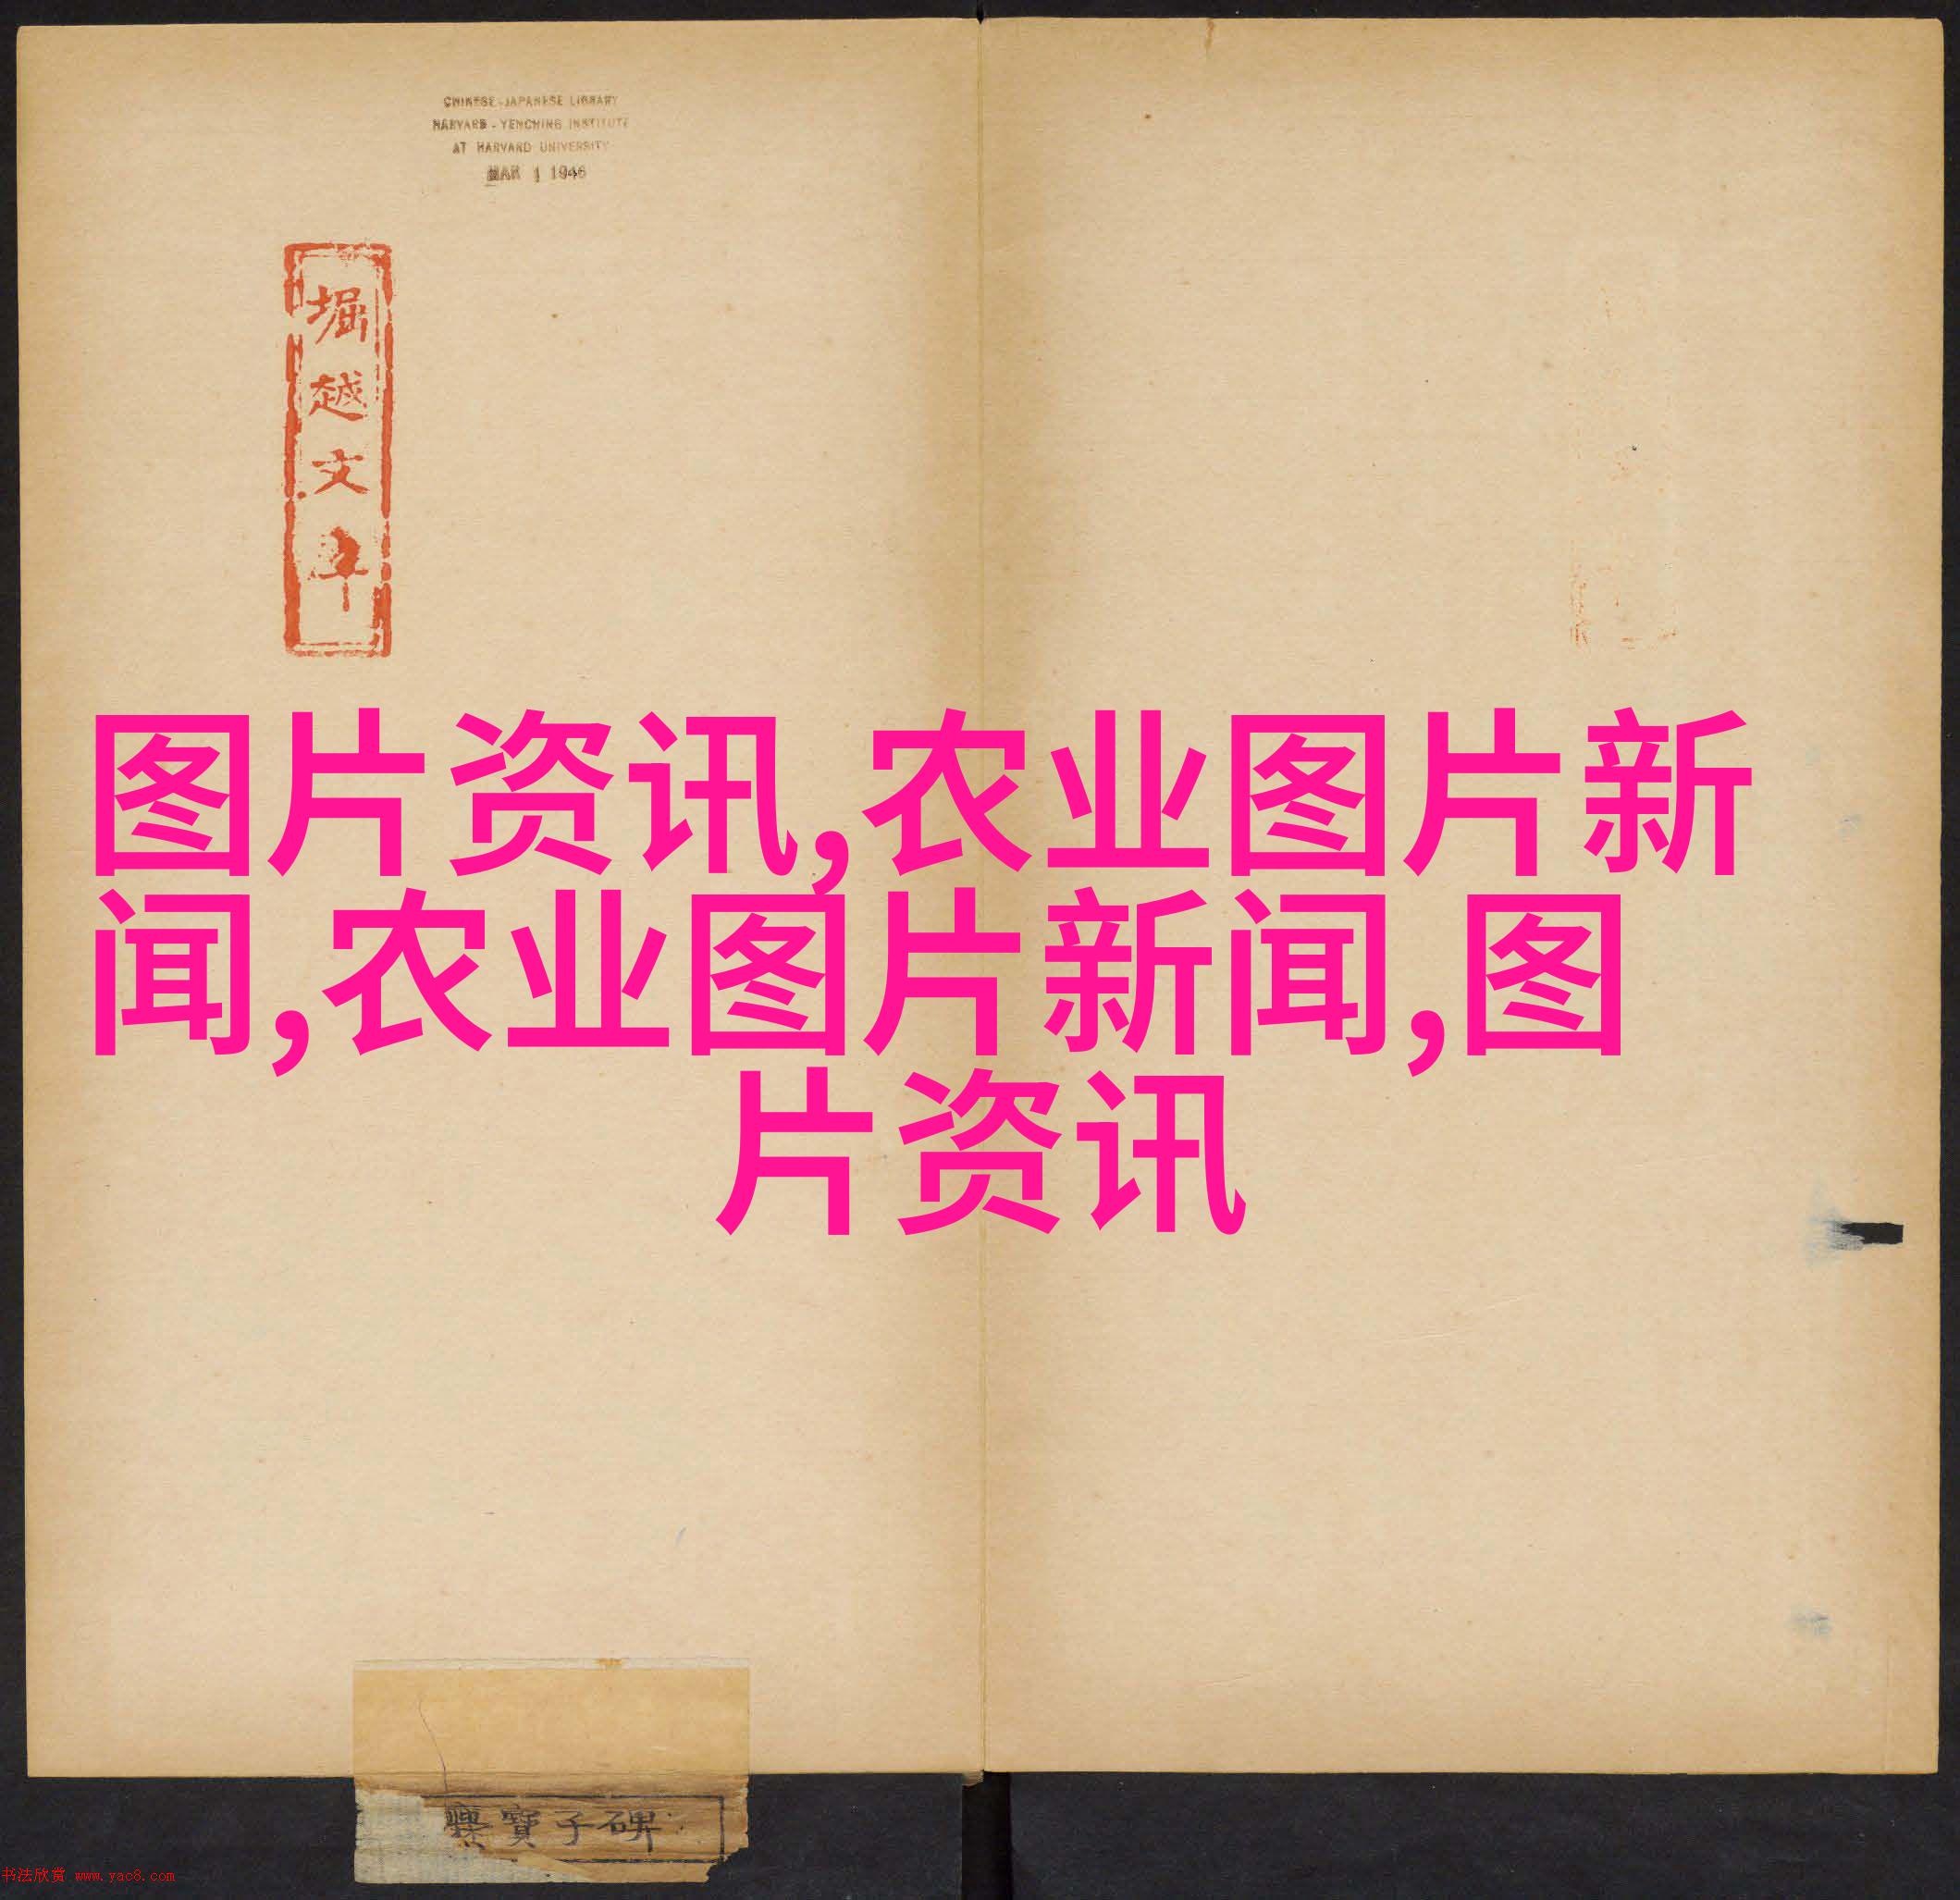 CHINESE-JAPANESE LIBRARY
HARVARD-YENCHING INSTITUTE
AT HARVARD UNIVERSITY
MAR 1 1946
堀越文
图片资讯,农业图片新
闻,农业图片新闻,图
片资讯
爨寶子碑
书法欣赏 www.yac8.com